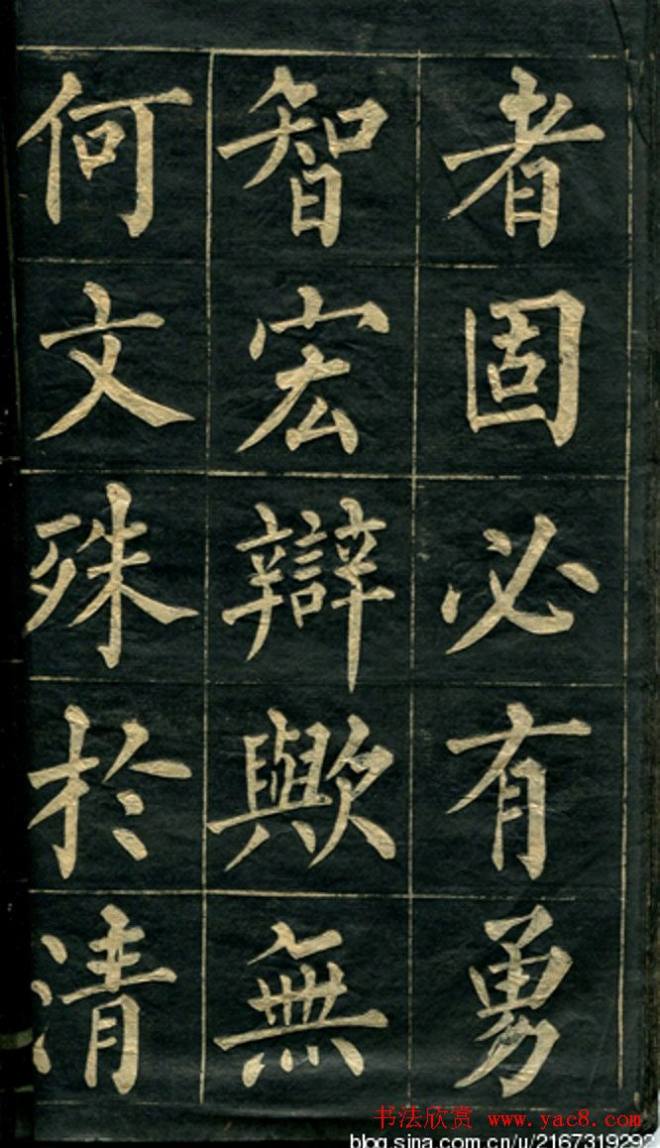 者固必有勇
智宏辯歟無
何文殊於清
书法欣赏 www.yac8.com
blog.sina.com.cn/u/2167319292